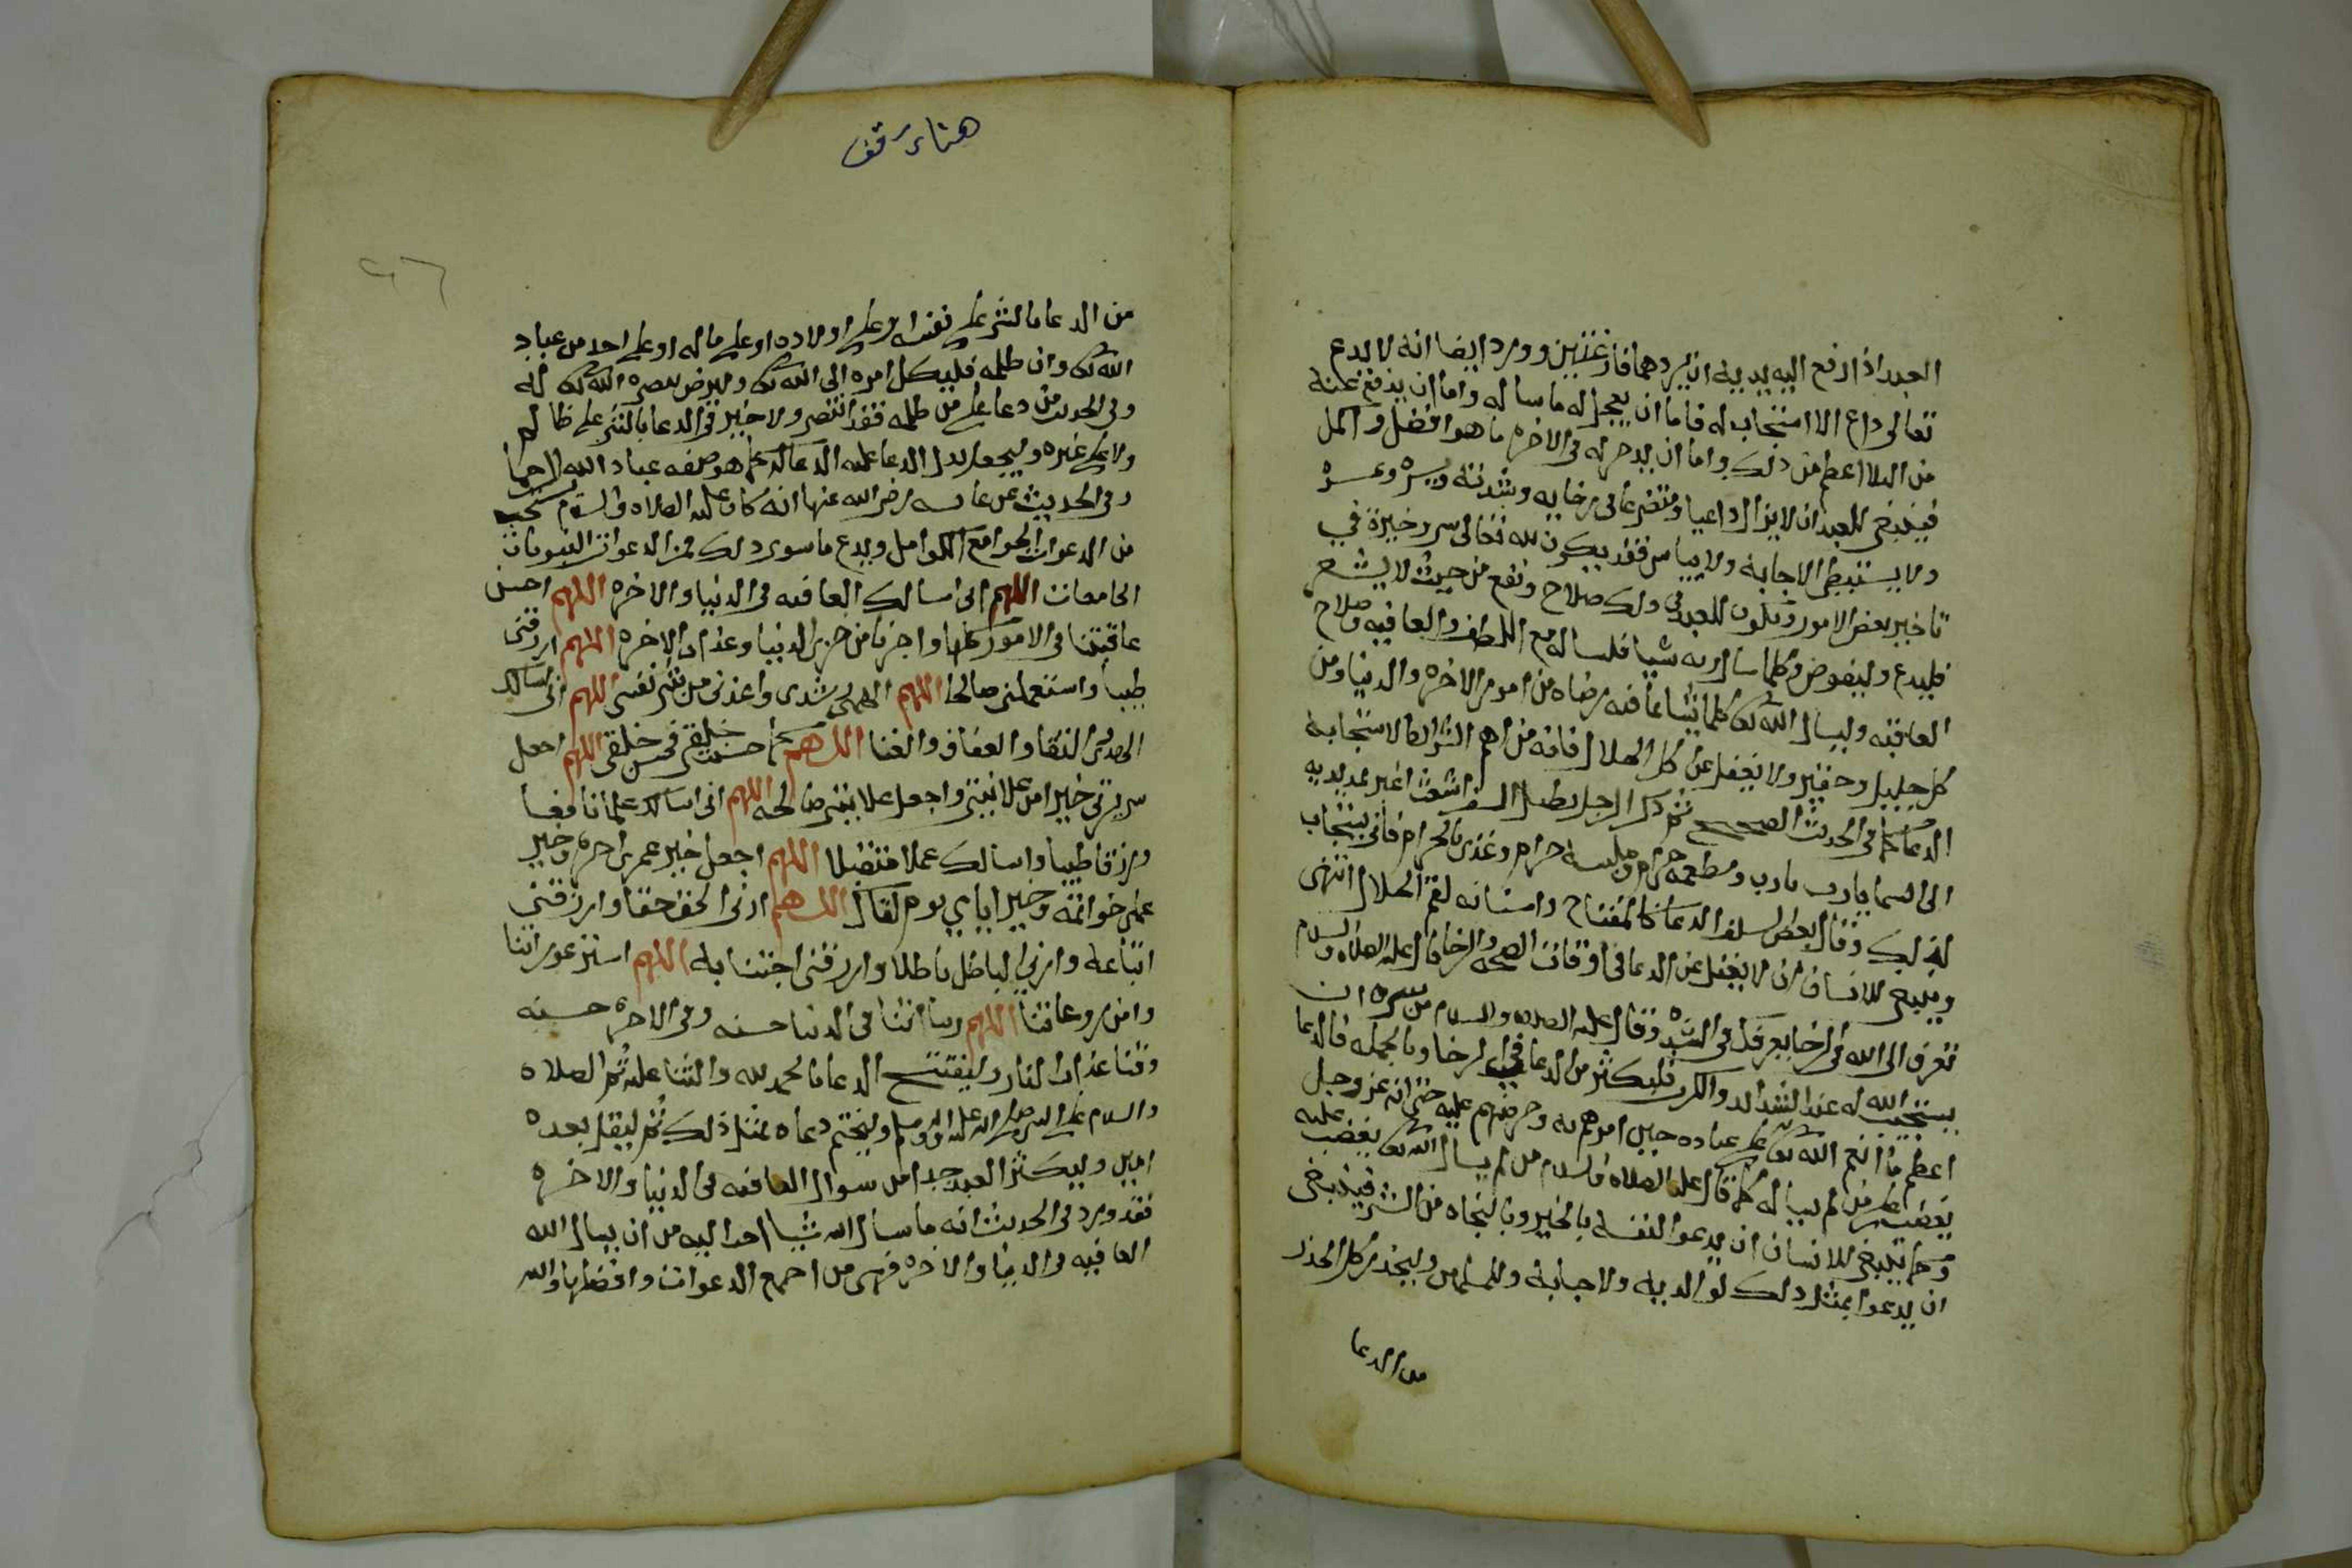 العبد اذا رفع اليه يديه ان يردهما فارغتين وورد ايضا انه لا يدع
تعالى داع الا استجاب له فاما ان يعجل له ما ساله واما ان يدفع عنه
من البلا اعظم من ذلك واما ان يدخر له في الاخره ما هو افضل واكمل
فينبغي للعبد ان لا يزال داعيا ومتضرعا في رخايه وشدته ويسره وعسره
ولا يستبطي الاجابة ولا ييأس فقد يكون لله تعالى سر وخيرة في
تاخير بعض الامور ويكون للعبد في ذلك صلاح ونفع من حيث لا يشعر
فليدع وليفوض وكلما سال ربه شيا فليساله مع اللطف والعافيه وصلاح
العاقبه وليسال الله تعالى كلما يشا مما فيه رضاه من امور الاخره والدنيا ومن
كل جليل وحقير ولا يغفل عن اكل الحلال فانه من اهم الشرايط لاستجابة
الدعا كما في الحديث الصحيح ثم ذكر الرجل يطيل السفر اشعث اغبر يمد يديه
الى السما يارب يارب ومطعمه حرام وملبسه حرام وغذى بالحرام فانى يستجاب
لذلك وقال بعض السلف الدعا كالمفتاح واسنانه لقم الحلال انتهى
وينبغي للانسان ان لا يغفل عن الدعا في اوقات الصحه والرخا قال عليه الصلاه والسلام
تعرف الى الله في الرخا يعرفك في الشده وقال عليه الصلاه والسلام من سره ان
يستجيب الله له عند الشدايد والكرب فليكثر من الدعا في الرخا وبالجمله فالدعا
اعظم ما انعم الله تعالى على عباده حين امرهم به وحرضهم عليه حتى انه عز وجل
يغضب على من لم يساله كما قال عليه الصلاه والسلام من لم يسال الله تعالى يغضب عليه
وكما ينبغي للانسان ان يدعوا لنفسه بالخير وبالنجاه من الشر فينبغي
ان يدعوا بمثل ذلك لوالديه ولاحبابه وللمسلمين وليحذر كل الحذر
من الدعا
هنا وقف
٢٦
من الدعا بالشر على نفسه او على اولاده او على ماله او على احد من عباد
الله تعالى وان ظلمه فليكل امره الى الله تعالى وليرض بنصره الله تعالى له
وفي الحديث من دعا على من ظلمه فقد انتصر ولا خير في الدعا بالشر على ظالم
ولا على غيره وليجعل بدل الدعا عليه الدعا له كما هو صفه عباد الله الرحما
وفي الحديث عن عايشه رضي الله عنها انه كان عليه الصلاه والسلام يستحب
من الدعوات الجوامع الكوامل ويدع ما سوى ذلك فمن الدعوات النبويات
الجامعات اللهم اني اسالك العافيه في الدنيا والاخره اللهم احسن
عاقبتنا في الامور كلها واجرنا من خزي الدنيا وعذاب الاخره اللهم ارزقني
طيبا واستعملني صالحا اللهم الهمني رشدي واعذني من شر نفسي اللهم اني اسالك
الهدى والتقا والعفاف والغنا اللهم كما حسنت خلقي فحسن خلقي اللهم اجعل
سريرتي خيرا من علانيتي واجعل علانيتي صالحه اللهم اني اسالك علما نافعا
ورزقا طيبا واسالك عملا متقبلا اللهم اجعل خير عمري اخره وخير
عملي خواتمه وخير ايامي يوم لقاك اللهم ارني الحق حقا وارزقني
اتباعه وارني الباطل باطلا وارزقني اجتنابه اللهم استر عوراتنا
وامن روعاتنا اللهم ربنا اتنا في الدنيا حسنه وفي الاخره حسنه
وقنا عذاب النار وليفتتح الدعا بالحمد لله والثنا عليه ثم الصلاه
والسلام على النبي صلى الله عليه وسلم وليختم دعاه بمثل ذلك ثم ليقل بعده
امين وليكثر العبد جدا من سوال العافيه في الدنيا والاخره
فقد ورد في الحديث انه ما سال الله شيا احب اليه من ان يسال الله
العافيه في الدنيا والاخره فهي من اجمع الدعوات وافضلها والله